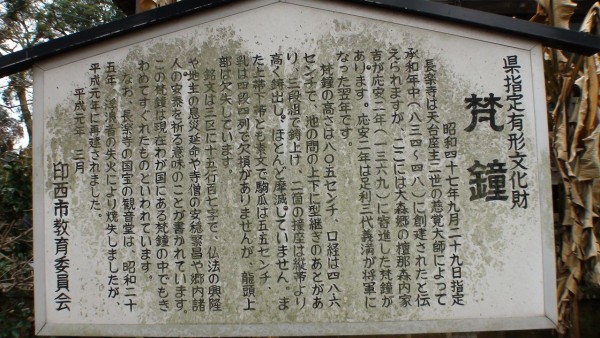 県指定有形文化財
梵鐘
昭和四十七年九月二十九日指定
長楽寺は天台座主二世の慈覚大師によって
承和年中(八三四~四八)に創建されたと伝
えられますが、ここには大森郷の檀那森内家
吉が応安二年(一三六九)に寄進した梵鐘が
あります。応安二年は足利三代義満が将軍に
なった翌年です。
梵鐘の高さは八〇五センチ、口経は四八六
センチで、池の間の上下に型継ぎのあとがあ
り、三段組で鋳上げ、二箇の撞座は縦帯より
高く鋳出し、ほとんど摩滅していません。ま
た上帯下帯とも素文で駒瓜は五五センチ、
乳は四段四列で欠損がありませんが、龍頭上
部は欠失しています。
銘文は三区に十五行百七字で、仏法の興隆
や地主の息災延命や寺僧の安穏繁昌や郷内諸
人の安泰を祈る意味のことが書かれています。
この梵鐘は現在わが国にある梵鐘の中でもき
わめてすぐれたものといわれています。
なお、長楽寺の国宝の観音堂は、昭和二十
五年、浮浪者の失火により焼失しましたが、
平成元年に再建されました。
平成元年 三月
印西市教育委員会